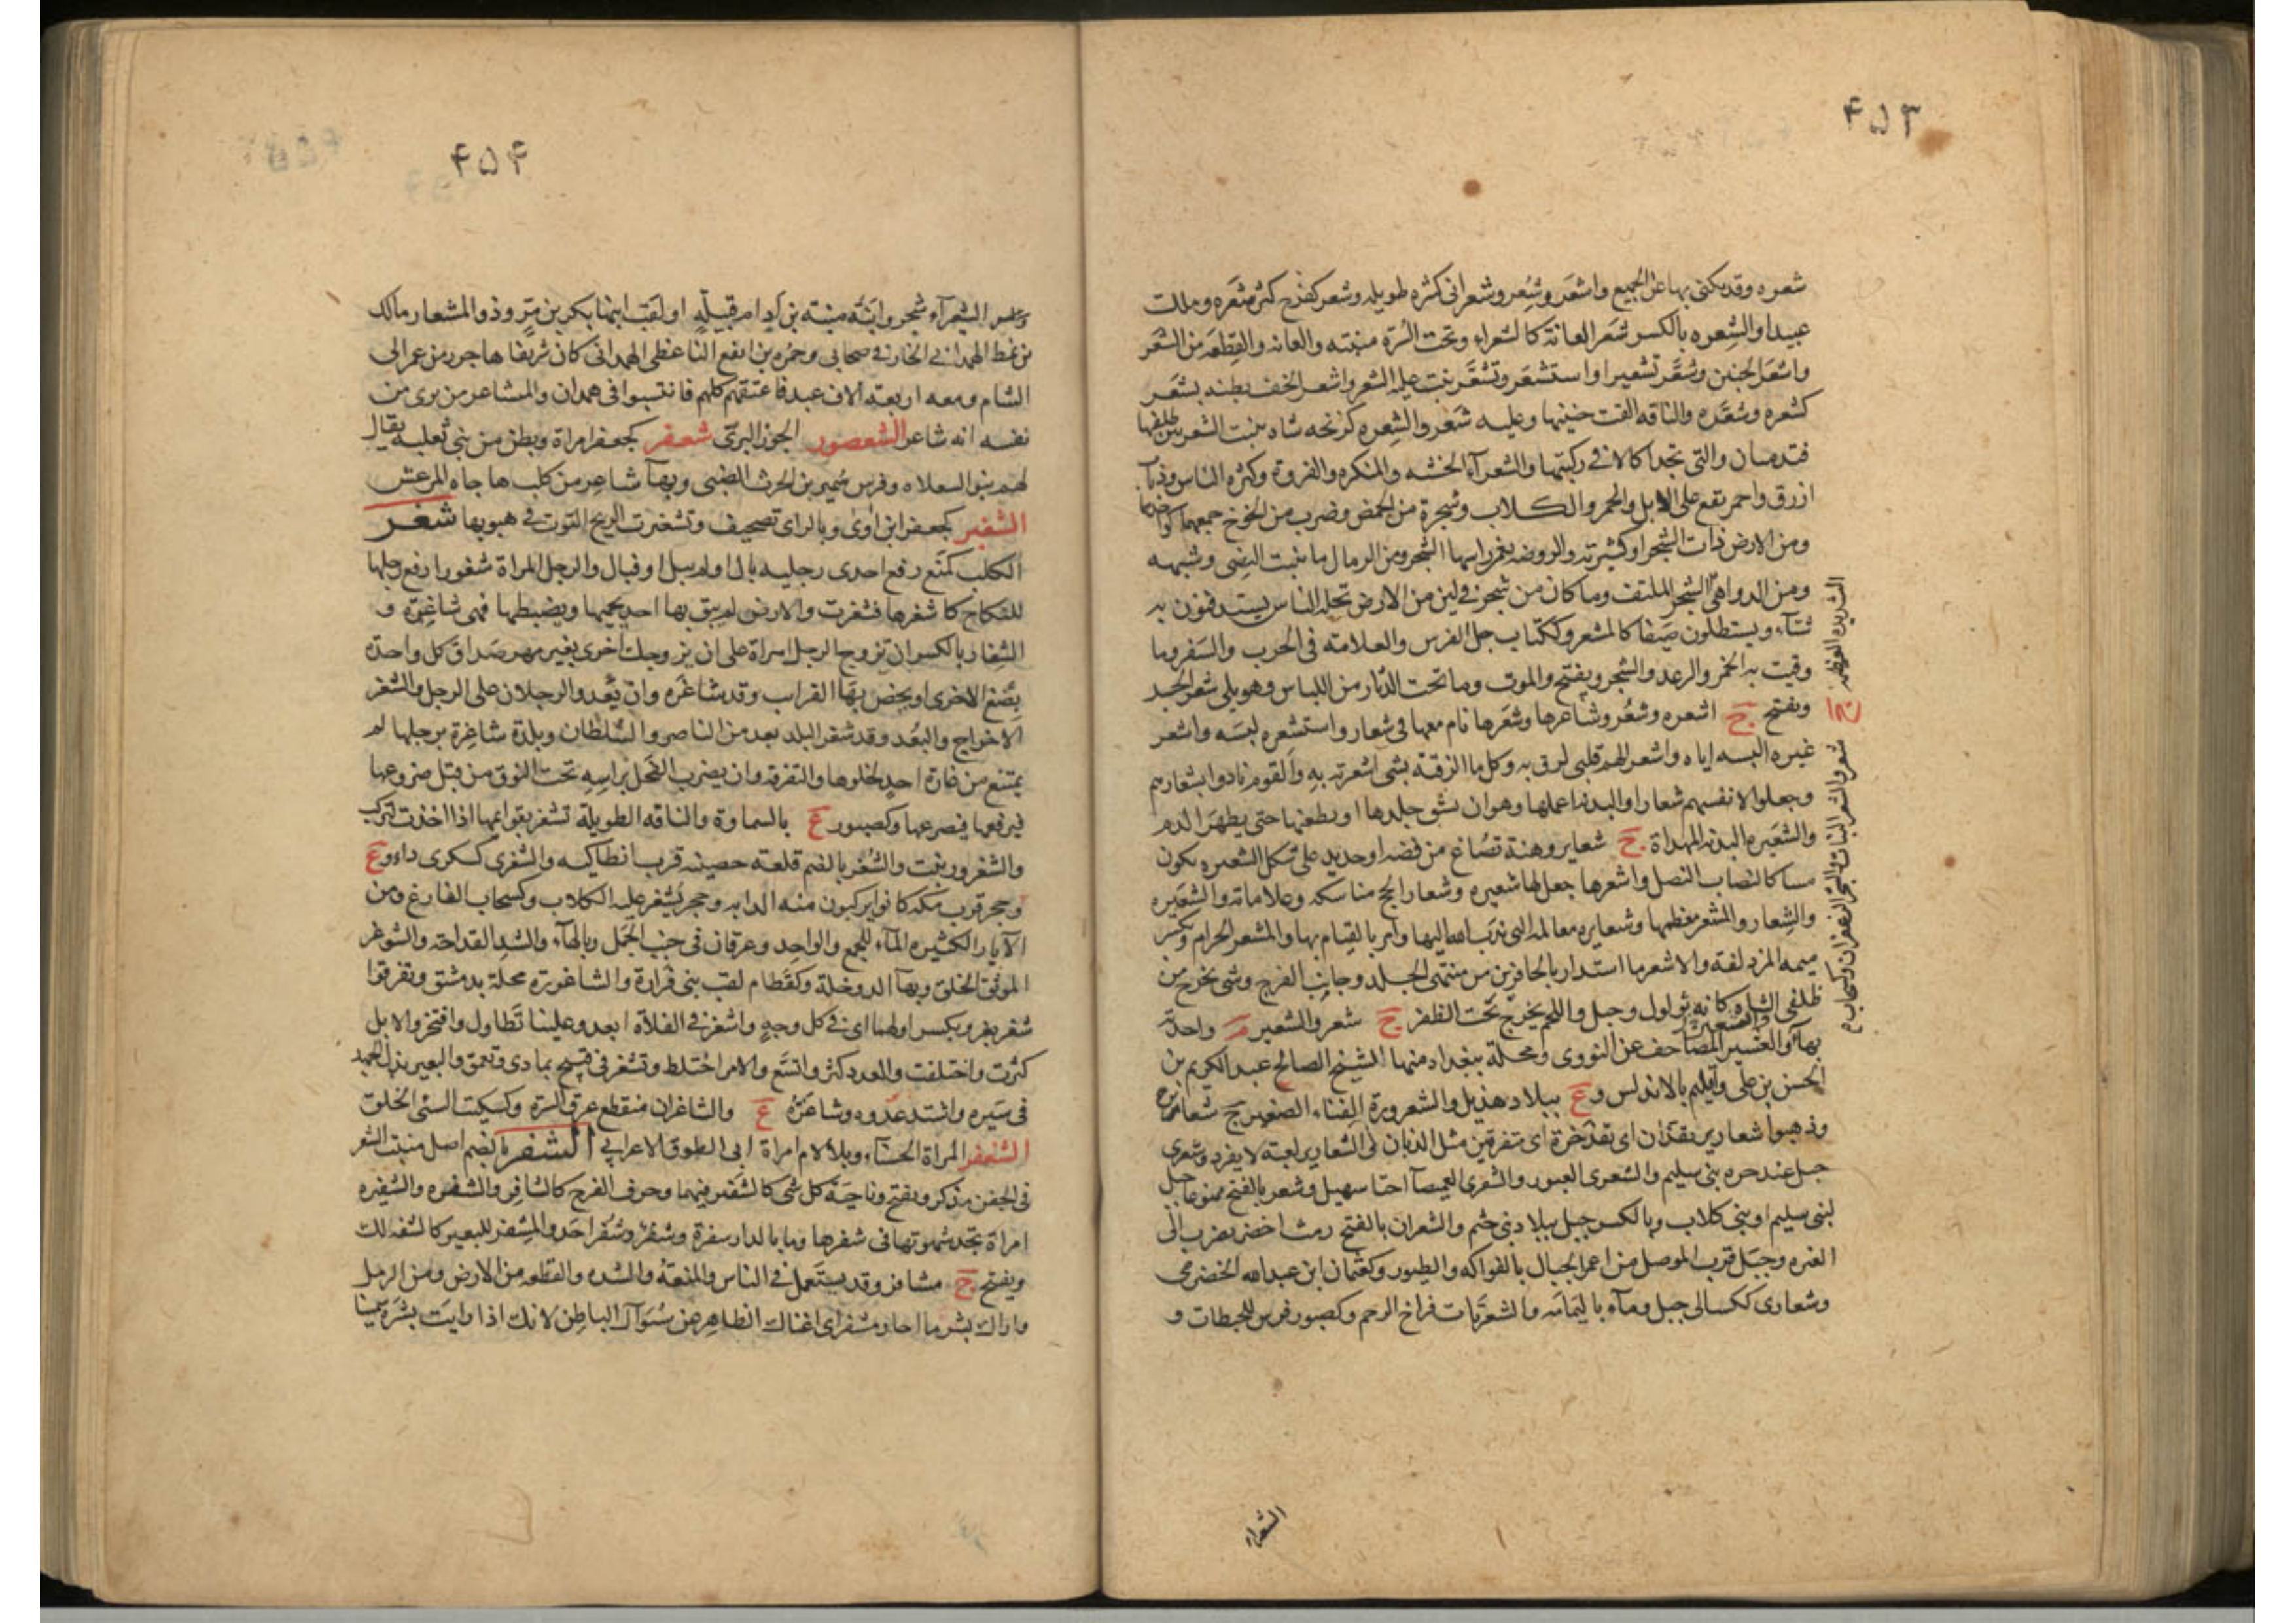 ۴۵۳
شعره وقد يكنى بها عن الجميع واشعر وشعر وشعرانى كثره طويله وشعر كفرح كثر شعره وملك
عبيدا والشعره بالكسر شعر العانة كالشعراء وتحت السرة منبته والعانه والقطعه من الشعر
واشعر الجنين وشعّر تشعيرا واستشعر وتشعّر نبت عليه الشعر واشعر الخف بطنه بشعر
كشعره وشعّره والناقه القت جنينها وعليه شعر والشعره كزنخه شاة ينبت الشعر بين ظلفيها
فتدميان والتى تجد اكالا فى ركبتها والشعرآء الخشنه والمنكره والفروة وكثره الناس وذباب
ازرق واحمر يقع على الابل والحمر والكلاب وشجرة من الحمض وضرب من الخوخ جمعهما كواحدهما
ومن الارض ذات الشجر او كثيرته والروضه يغمر راسها الشجر ومن الرمال ما ينبت النصى وشبهه
ومن الدواهى الشجر الملتف وما كان من شجر فى لين من الارض تحله الناس يستدفئون به
شتآء ويستظلون صيفا كالمشعر وككتاب جل الفرس والعلامته فى الحرب والسفر وما
وقيت به الخمر والرعد والشجر ويفتح والموت وما تحت الدثار من اللباس وهو يلى شعر الجسد
ويفتح ج اشعره وشعُر وشاعرها وشعرها نام معها فى شعار واستشعره لبسه واشعر
غيره البسه اياه واشعر الهم قلبى لزق به وكل ما الزقته بشى اشعرته به والقوم نادوا بشعارهم
وجعلوا لانفسهم شعارا والبدنه اعملها وهو ان يشق جلدها او يطعنها حتى يظهر الدم
والشعيره البدنه المهداة ج شعاير وهنة تصاغ من فضه او حديد على شكل الشعيره يكون
مساكا لنصاب النصل واشعرها جعل لها شعيره وشعار الحج مناسكه وعلاماته والشعيره
والشعار والمشعر معظمها وشعايره معالمه التى ندب الله اليها وامر بالقيام بها والمشعر الحرام وتكسر
ميمه المزدلفة والاشعر ما استدار بالحافر من منتهى الجلد وجانب الفرج وشى يخرج من
ظلفى الشاة كانه ثولول وجبل واللحم يخرج تحت الظفر ج شعر والشعير م واحدته
بهآء والعشير المصاحف عن النووى ومحلة ببغداد منها الشيخ الصالح عبد الكريم بن
الحسن بن على واقليم بالاندلس وع ببلاد هذيل والشعرورة القثاء الصغير ج شعارير
وذهبوا شعارير بقذان اى بقذخرة اى متفرقين مثل الذبان فى الشعارير لعبة لا يفرد وشعرى
جبل عند حره بنى سليم والشعرى العبور والشعرى الغميصآ اختا سهيل وشعر بالفتح ممنوعا جبل
لبنى سليم او بنى كلاب وبالكسر جبل ببلاد بنى جشم والشعران بالفتح رمث اخضر يضرب الى
الغبره وجبل قرب الموصل من اعمر الجبال بالفواكه والطيور وكعثمان ابن عبدالله الحضرمى
وشعارى ككسالى جبل ومآء باليمامه والشعريات فراخ الرحم وكصبور فرس للحبطات و
الشعراء
۴۵۴
الشعرآء شجر وابنة منبّه بن اد ام قبيلة او لقب ابنها بكر بن مرّ وذو المشعار مالك
بن نمط الهمدانى الخارفى صحابى وحمزه بن ايفع الناعطى الهمدانى كان شريفا هاجر زمن عمر الى
الشام ومعه اربعة الاف عبد فاعتقهم كلهم فانتسبوا فى همدان والمشاعر من يرى من
نفسه انه شاعر الشعصور الجوز البرّى شعفر كجعفر امراة وبطن من بنى ثعلبه يقال
لهم بنو السعلاه وفرس سمير بن الحرث الضبى وبهآ شاعر من كلب هاجاه المرعش
الشغبر كجعفر ابن اوى وبالزاى تصحيف وتشغبرت الريح التوت فى هبوبها شغر
الكلب كمنع رفع احدى رجليه بال او لم يبل او فبال والرجل المراة شغورا رفع رجلها
للنكاح كاشغرها فشغرت والارض لم يبق بها احد يحميها ويضبطها فهى شاغرة و
الشغار بالكسر ان تزوج الرجل امراة على ان يزوجك اخرى بغير مهر صداق كل واحدة
بضع الاخرى او يخص بها القراب وقد شاغره وان يعدو الرجلان على الرجل والشغر
الاخراج والبعد وقد شغر البلد بعد من الناصر والسلطان وبلدة شاغرة برجلها لم
يمتنع من غارة احد لخلوها والتفرقة وان يضرب الفحل براسه تحت النوق من قبل ضروعها
فيرفعها فيصرعها وكصبور ع بالسماوة والناقه الطويلة تشغر بقوائمها اذا اخذت لتركب
والشغرور نبت والشغر بالضم قلعته حصينه قرب انطاكيه والشغرى كسكرى داء وع
وحجر قرب مكه كانوا يركبون منه الدابه وحجر يشغر عليه الكلاب وكسحاب الفارغ ومن
الآبار الكثيره المآء للجمع والواحد وعرقان فى جنب الجمل وبالهآء والشد القداحة والشوغر
الموثق الخلق وبهآ الدوخلة وكقطام لقب بنى فزارة والشاغورة محلة بدمشق وتفرقوا
شغر بغر ويكسر اولهما اى فى كل وجه واشغر فى الفلاة ابعد وعلينا تطاول وافتخر والابل
كثرت واختلفت والعدد كثر واتسع والامر اختلط وتشغر فى قبيح تمادى وتعمق والبعير بذل الجهد
فى سيره واشتد عدوه وشاغرة ع والشاغران منقطع عرق السرة وكسكيت السئ الخلق
الشنغر المراة الحسنآء وبلا لام امراة ابى الطوق الاعرابى الشفر بالضم اصل منبت الشعر
فى الجفن مذكر ويفتح وناحية كل شى كالشفير فيهما وحرف الفرج كالشافر والشفره والشفيره
امراة تجد شهوتها فى شفرها وما بالدار شفرة وشفر وشفر احد والمشفر للبعير كالشفه لك
ويفتح ج مشافر وقد يستعمل فى الناس والمنعة والشده والقطعه من الارض ومن الرمل
واراك بشر ما احار مشفر اى اغناك الظاهر عن سؤال الباطن لانك اذا رايت بشره سمينا